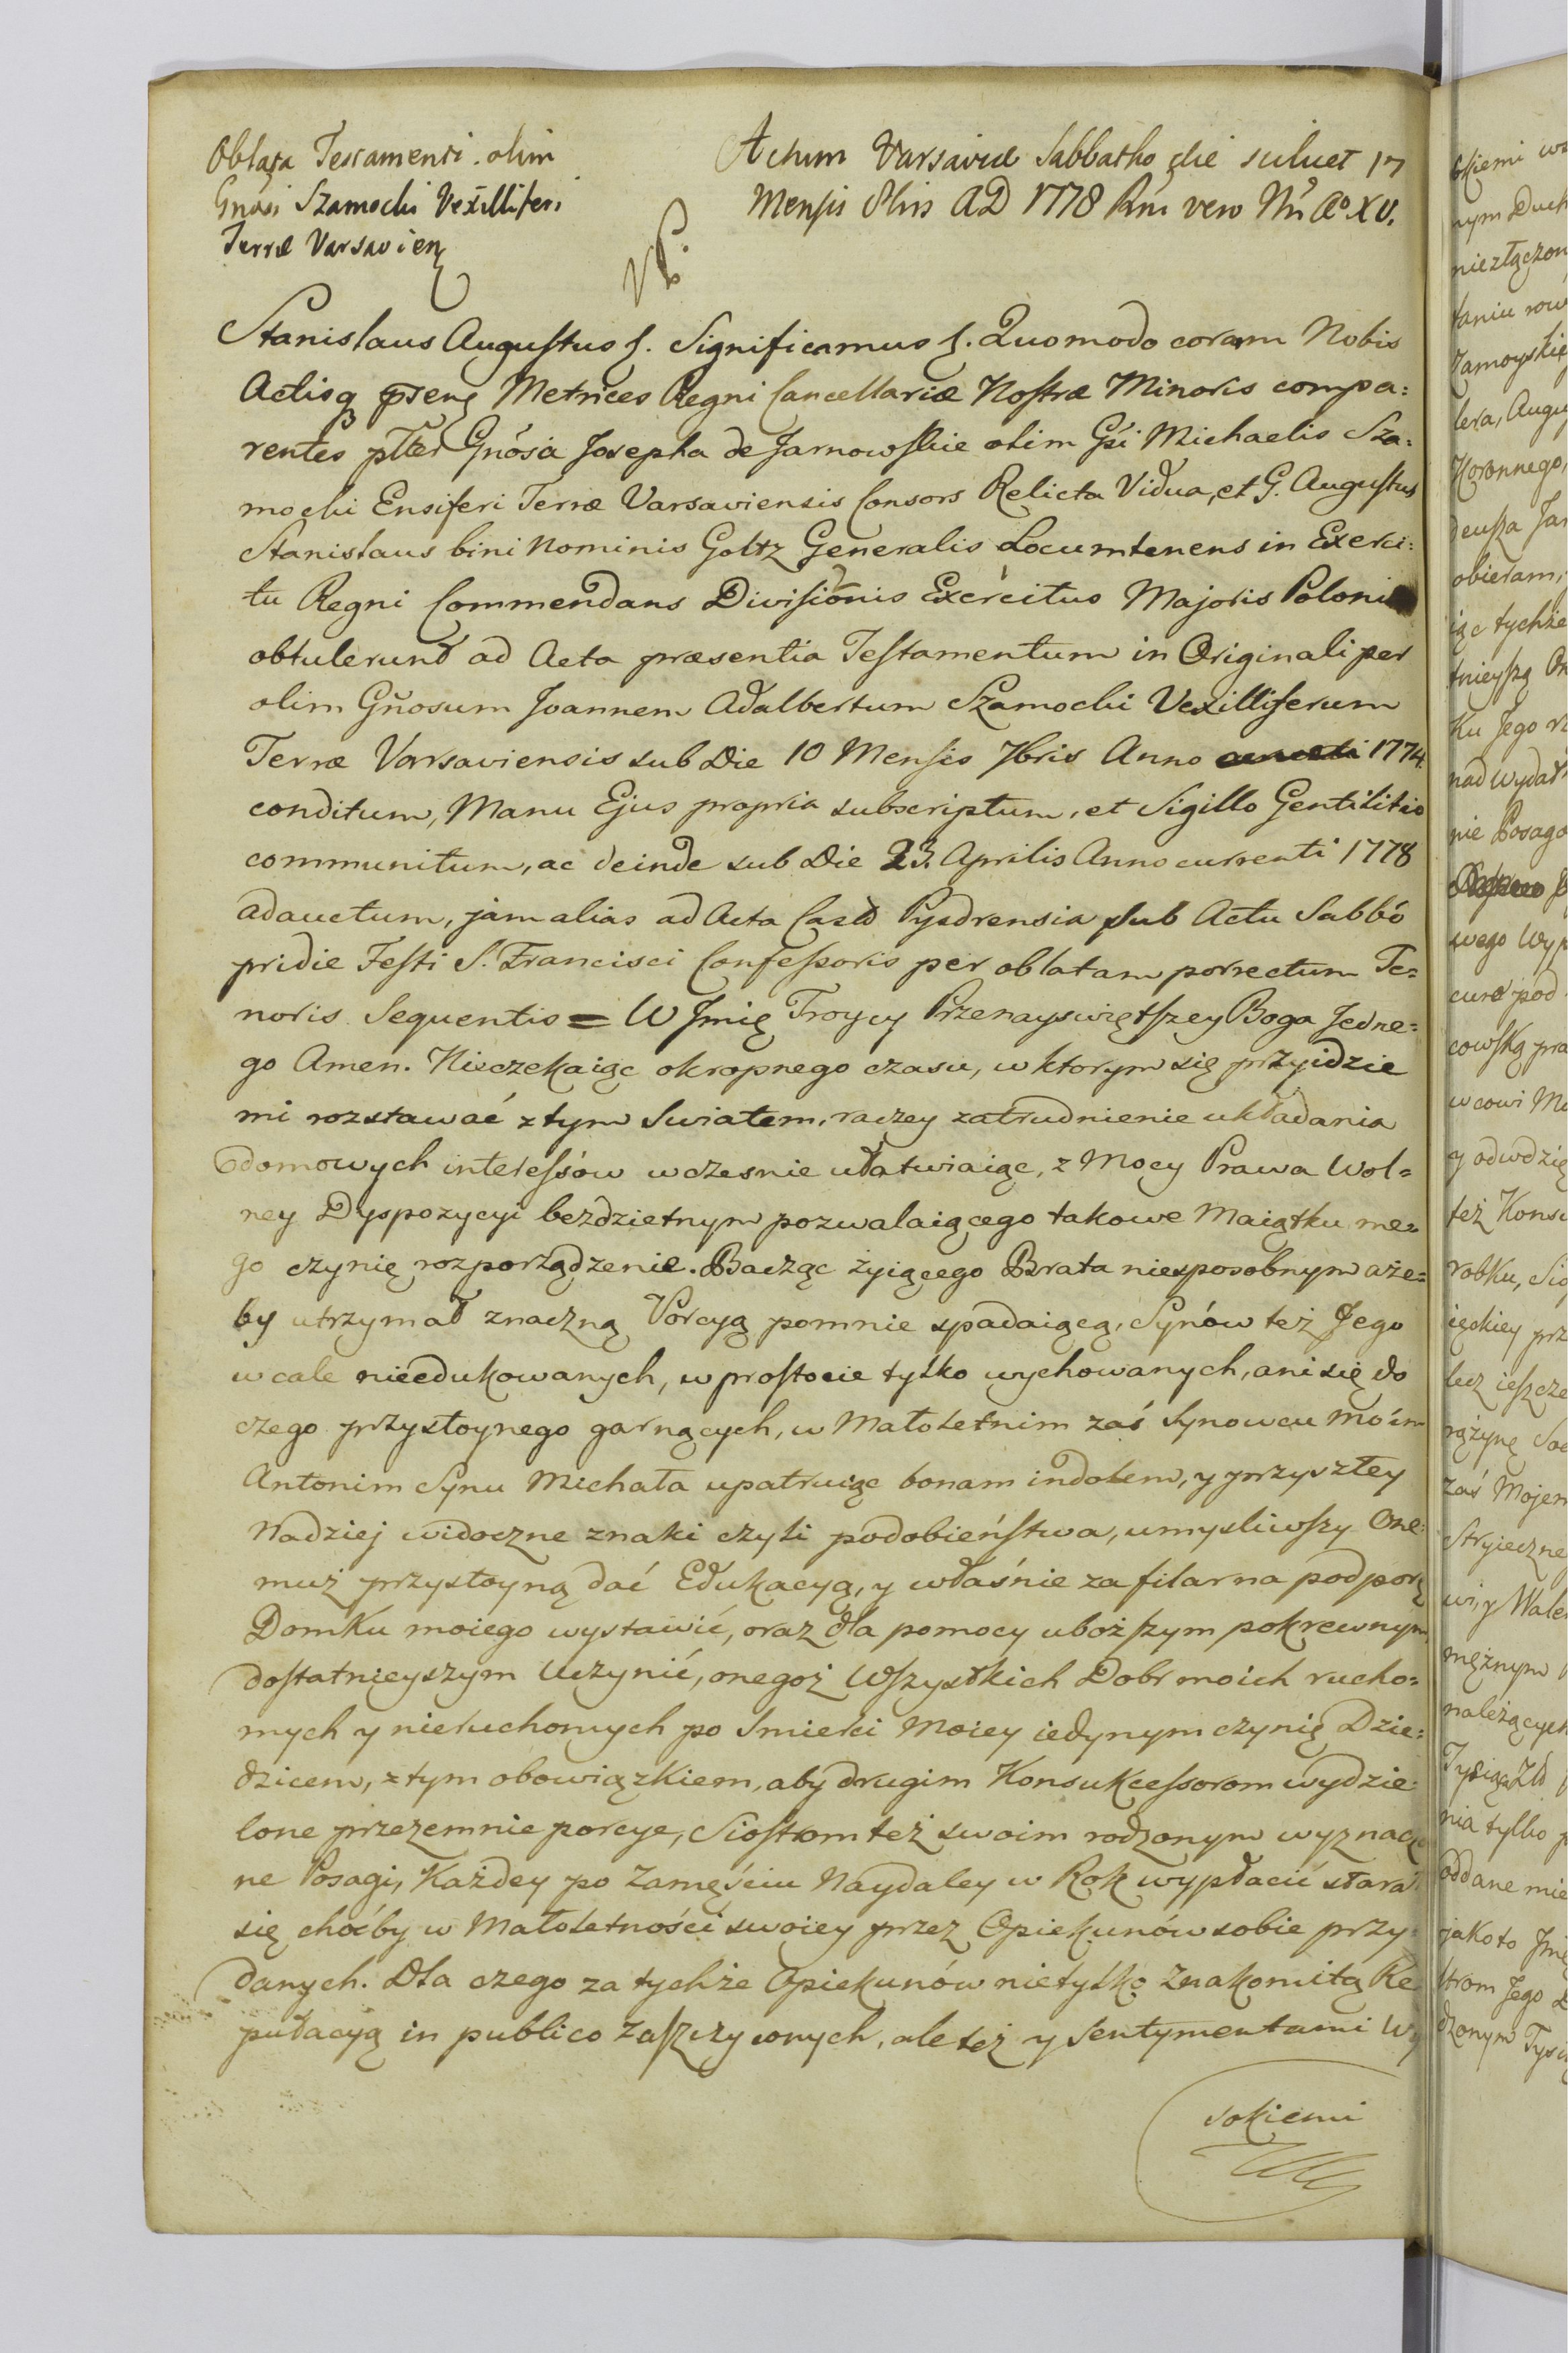 Oblata Testamenti olim
Gnosi Szamocki Vexilliferi
Terræ Varsavien
Actum Varsaviæ Sabbatho die scilicet 17
Mensis 8bris AD 1778 Rni vero Nri Aº XV.
Stanislaus Augustus f. Significamus f. Quomodo coram Nobis
Actisq pseng Metrices Regni Cancellariæ Nostræ Minoris compa:
rentes pltter Gnosa Josepha de Jarnowskie olim Gsi Michaelis Sza:
mocki Ensiferi Terræ Varsaviensis Consors Relicta Vidua, et G. Augustus
Stanislaus bini Nominis Goltz Generalis Locumtenens in Exerci:
tu Regni Commendans Divisionis Exercitus Majoris Poloni
obtulerunt ad Acta præsentia Testamentum in Originali per
olim Gnosum Joannem Adalbertum Szamocki Vexilliferum
Terræ Varsaviensis sub Die 10 Mensis 7bris Anno 1774.
conditum, Manu Ejus propria subscriptum, et Sigillo Gentilitio
communitum, ac deinde sub Die 23. Aprilis Anno currenti 1778
adauctum, jam alias ad Acta Castr Pysdrensia sub Actu Sabbo
pridie Festi S. Francisci Confessoris per oblatam porrectum Te=
noris Sequentis = W Jmię Troycy Przenayswiętszey Boga Jedne=
go Amen. Nieczekaiąc okropnego czasu, w ktorym się przyidzie
mi rozstawać z tym Swiatem, raczey zatrudnienie układania
domowych interessów wczesnie ułatwiaiąc, z Mocy Prawa Wol=
ney Dyspozycyi bezdzietnym pozwalaiącego takowe Maiątku me=
go czynię rozporządzenie. Bacząc żyiącego Brata niesposobnym aże=
by utrzymał znaczną Porcyą pomnie spadaiącą, Synów też Jego
wcale nieedukowanych, w prostocie tylko wychowanych, ani się do
czego przystoynego garnących, w Małoletnim zaś Synowcu Moim
Antonim Synu Michała upatruiąc bonam indolem, y przyszłey
Nadziej widoczne znaki czyli podobieństwa, umysliwszy One:
muż przystoyną dać Edukacyą, y właśnie za filar na podporę
Domku moiego wystawić, oraz dla pomocy uboższym pokrewnym
dostatnieyszym Uczynić, onegoż Wszystkich Dobr moich rucho=
mych y nieruchomych po Smierci Moiey iedynym czynię Dzie:
dzicem, z tym obowiązkiem, aby drugim Konsukcessorom wydzie:
lone przezemnie porcye, Siostrom też swoim rodzonym wyznaczo
ne Posagi, Każdey po Zamęściu Naydaley w Rok wypłacić starał
się choćby w Małoletności swoiey przez Opiekunów sobie przy=
danych. Dla czego za tychże Opiekunów nietylko Znakomitą Re
putacyą in publico Zaszczyconych, ale też y Sentymentami Wy
sokiemi